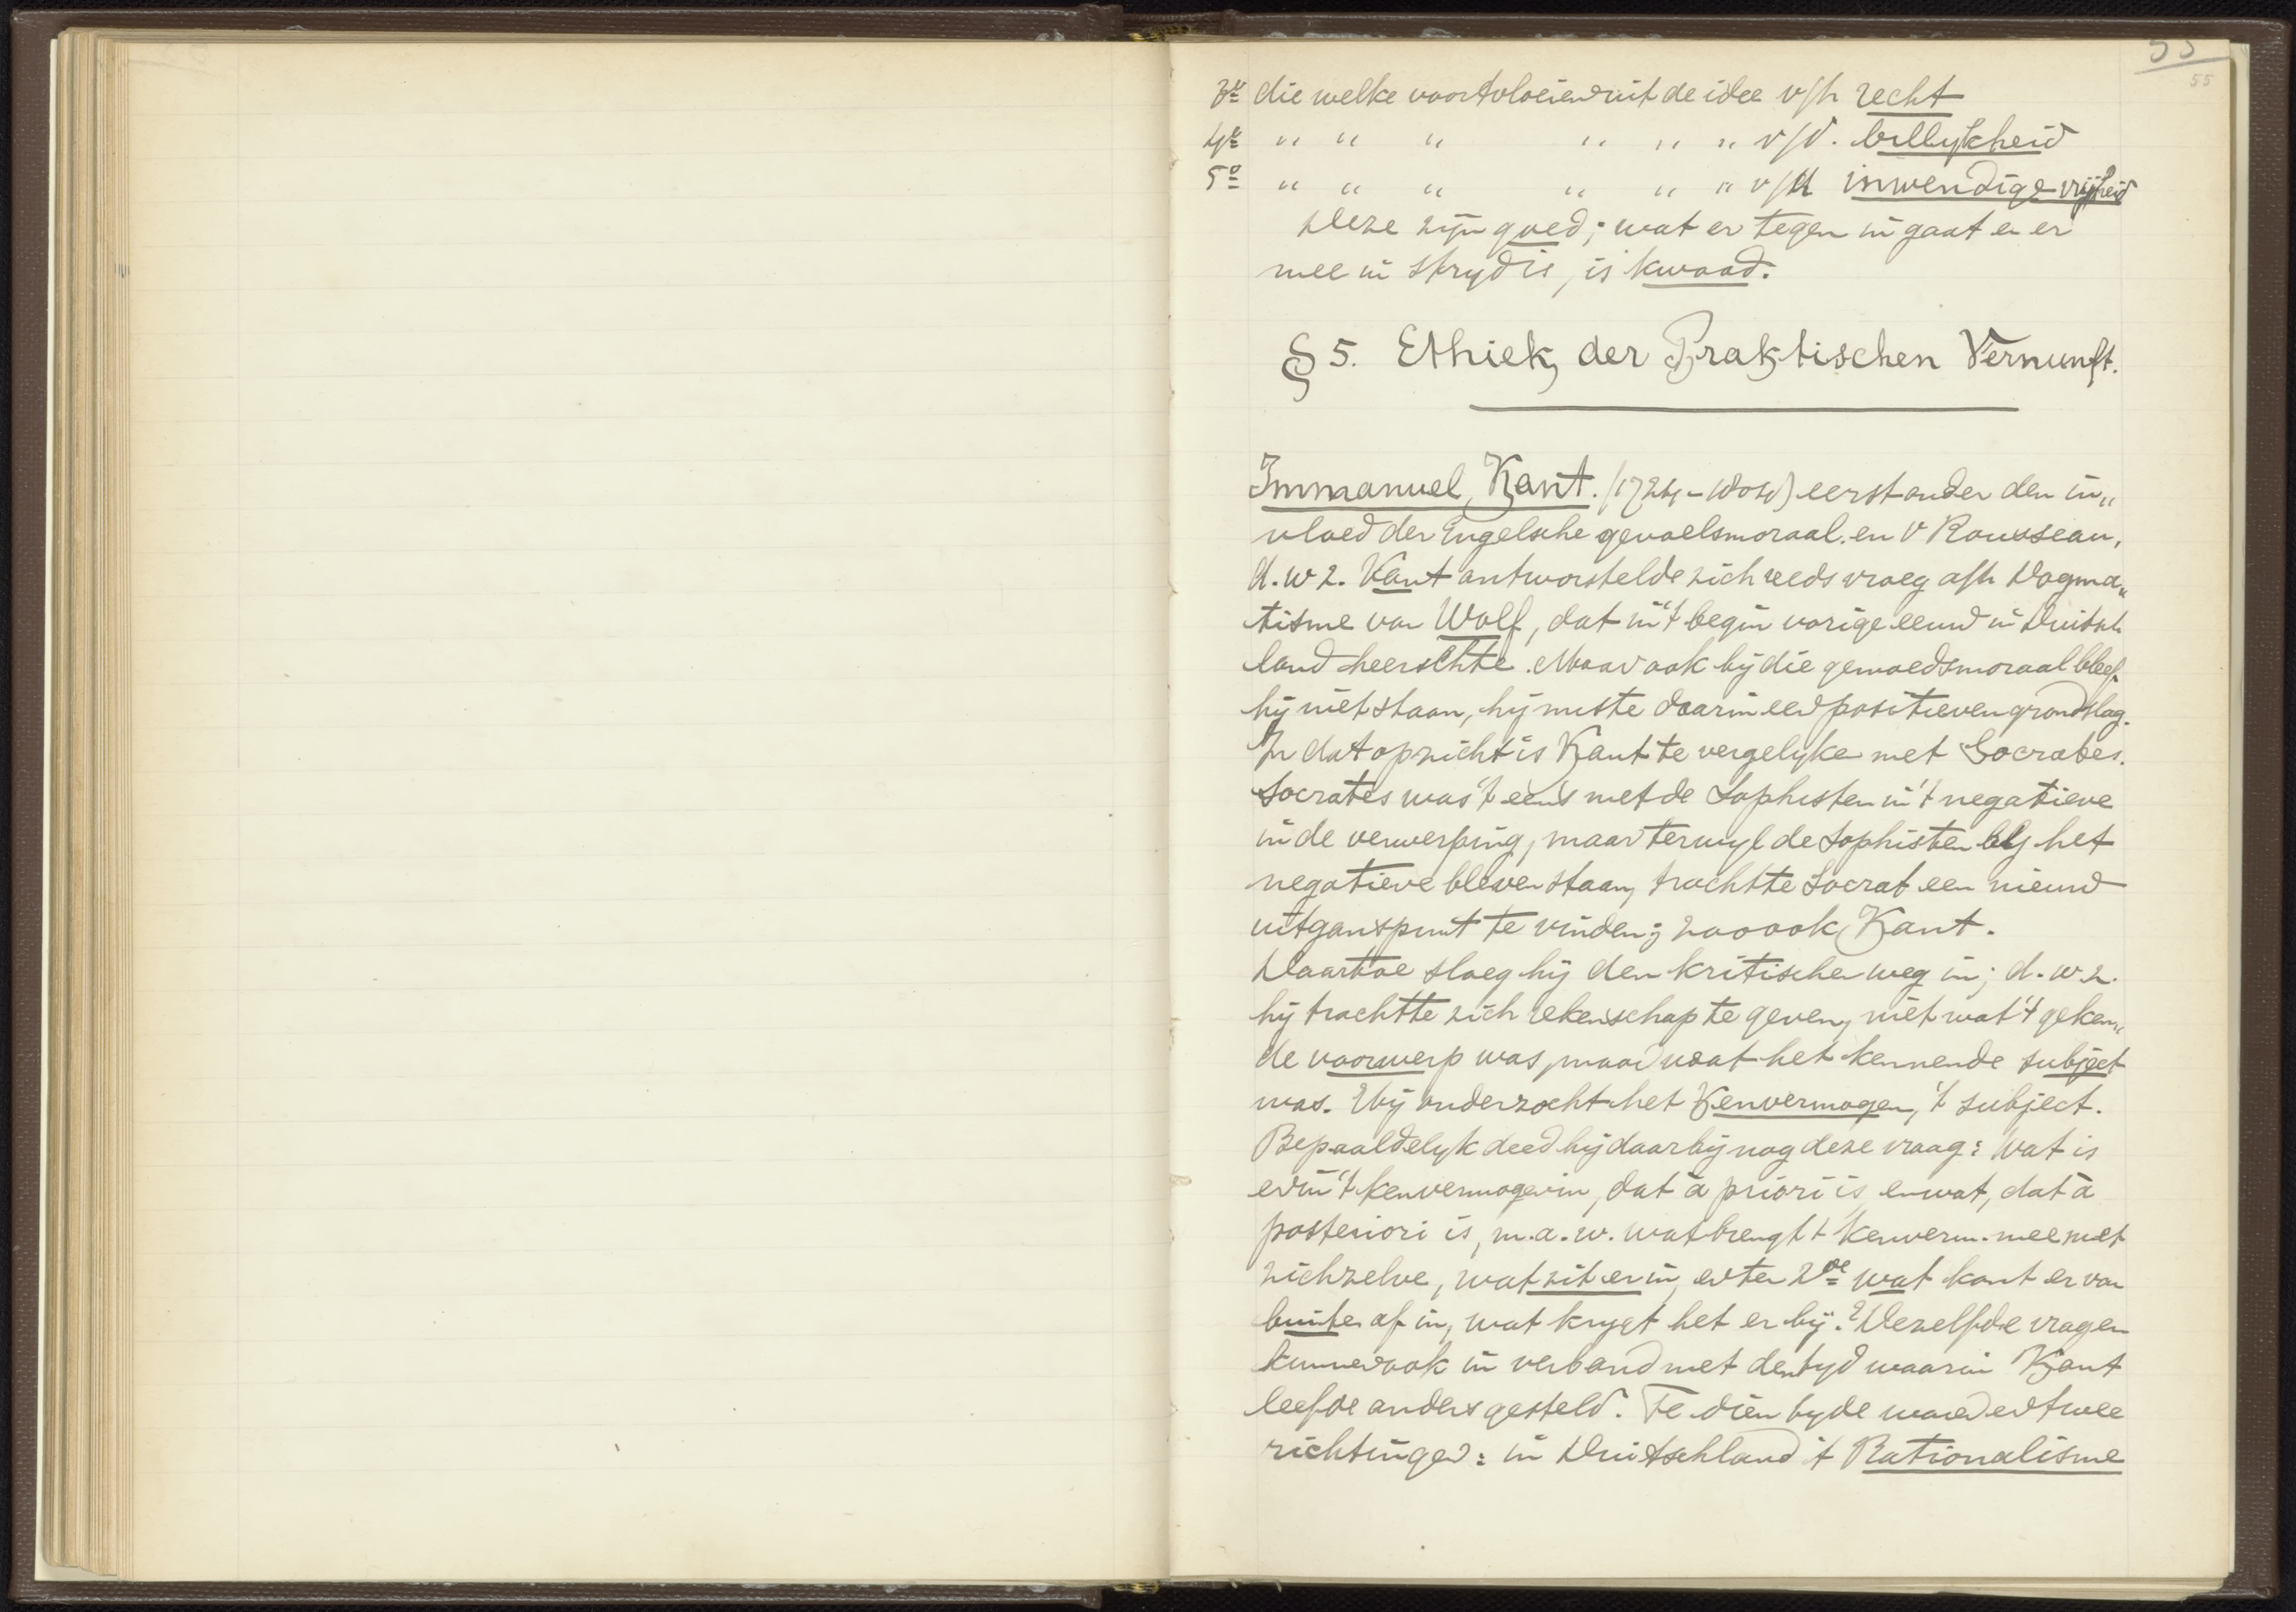 55
55
3e die welke voortvloeien uit de idee v/h recht
4e " " " " " " v/d. billykheid
5o " " " " " " v/d inwendige vrijheid
Deze zijn goed; wat er tegen in gaat en er
mee in stryd is, is kwaad.
§ 5. Ethiek der Praktischen Vernunft.
Immanuel Kant. (1724-1804) eerst onder den in„
vloed der Engelsche gevoelsmoraal. en v Rousseau,
d.w z. Kant ontworstelde zich reeds vroeg a/h Dogma„
tisme van Wolf, dat in 't begin vorige eeuw in Duitsch
land heerschte. Maar ook bij die gemoedsmoraal bleef
hij niet staan, hij miste daarin een positieven grondslag.
In dat opzicht is Kant te vergelyke met Socrates.
Socrates was 't eens met de Sophisten in 't negatieve
in de verwerping, maar terwyl de Sophisten bij het
negatieve bleven staan, trachtte Socrat een nieuw
uitganspunt te vinden; zoo ook Kant.
Daartoe sloeg hij den kritische weg in; d.w.z.
hij trachtte zich rekenschap te geven, niet wat 't geken„
de voorwerp was, maar wat het kennende subject
was. Hij onderzocht het Kenvermogen, 't subject.
Bepaaldelyk deed hij daarbij nog deze vraag: Wat is
er in 't kenvermogen in, dat à priori is, en wat, dat à
posteriori is, m.a.w. wat brengt 't kenverm. mee met
zichzelve, wat zit er in, en ten 2de wat komt er van
buiten af in, wat krygt het er bij? Dezelfde vragen
kunnen ook in verband met den tyd waarin Kant
leefde anders gesteld. Te dien tyde waren er twee
richtingen: in Duitschland 't Rationalisme